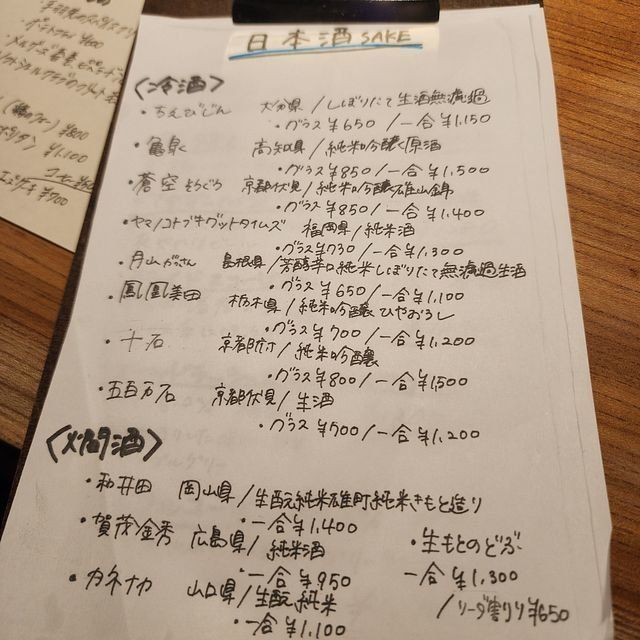 日本酒 SAKE
〈冷酒〉
・ちえびじん 大分県/しぼりたて生酒無濾過
・グラス¥650/一合¥1,150
・亀泉 高知県/純米吟醸原酒
・グラス¥850/一合¥1,500
・蒼空 そうくう 京都伏見/純米吟醸雄山錦
・グラス¥850/一合¥1,400
・ヤマノコトブキグッドタイムズ 福岡県/純米酒
・グラス¥730/一合¥1,300
・月山 がっさん 島根県/芳醇辛口純米しぼりたて無濾過生酒
・グラス¥650/一合¥1,100
・鳳凰美田 栃木県/純米吟醸ひやおろし
・グラス¥700/一合¥1,200
・十石 京都/純米吟醸
・グラス¥800/一合¥1,500
・五百万石 京都伏見/生酒
・グラス¥700/一合¥1,200
〈燗酒〉
・和井田 岡山県/生酛純米雄町純米きもと造り
・一合¥1,400
・賀茂金秀 広島県/純米酒
・一合¥950
・カネナカ 山口県/生酛純米
・一合¥1,100
・生もとのどぶ
一合¥1,300
/ソーダ割り¥650
¥800
¥1,100
¥700